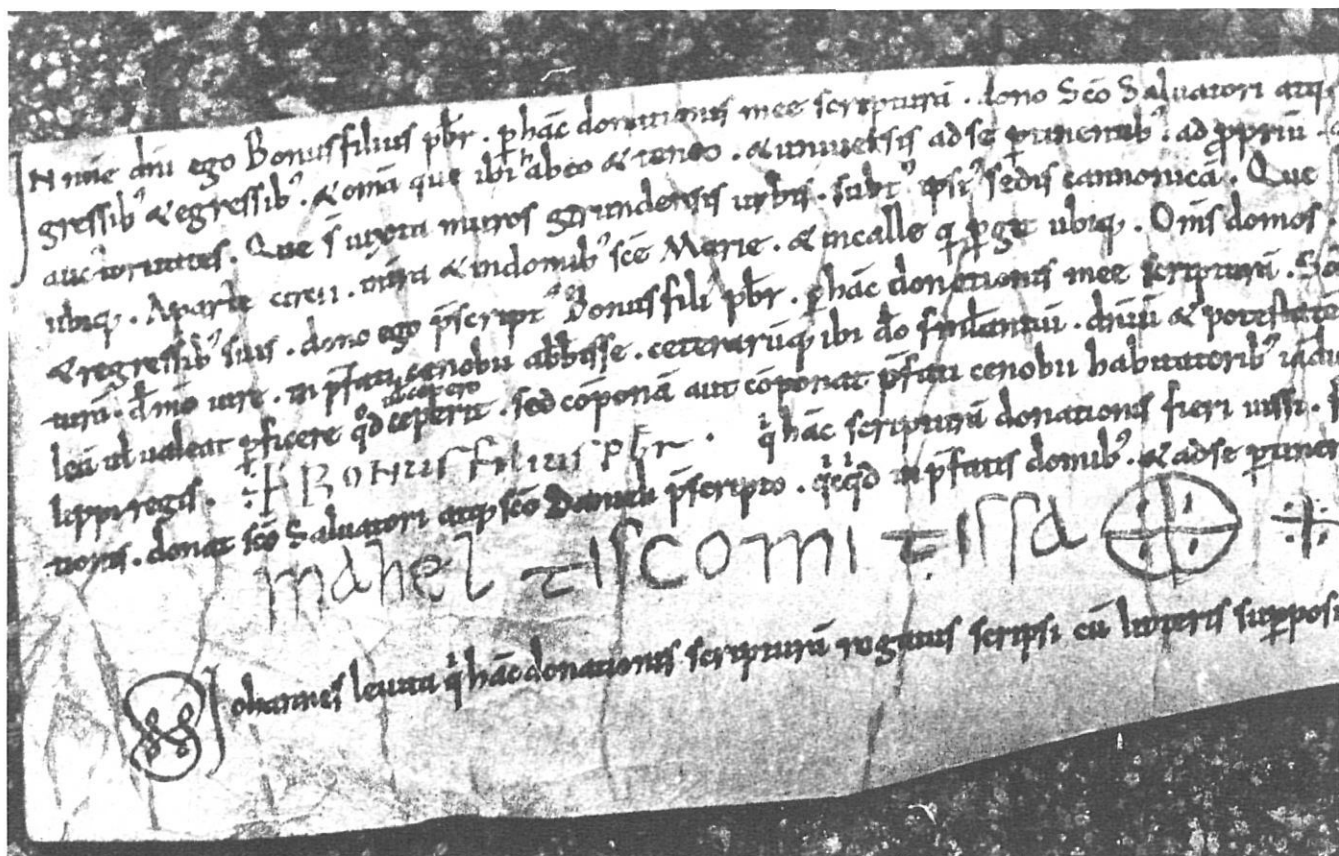 IN nīne dnī ego Bonusfilius pbr̄. p hāc donationis mee scripturā. dono Scō Saluatori atq;
gressib; & egressib;. & omā que ibi habeo & teneo. & uniuersis ad se ptinentib;. ad ppriū
auctoritates. Que s̄ iuxta muros gerundensis urbis. subt; ipsi; sedis cannonicā. Que
ubiq;. Aparte circii. & indomib; scē Marie. & incalle q̄ pgit ubiq;. Om̄s domos
& regressib; suis. dono ego p̄script; Bonusfili; pbr̄. p hāc donationis mee scripturā.
turā. iure. in p̄fati cenobii abb̄isse. ceterarūq; ibi dō famlantiū. dn̄iū & potestatē
leā ul ualeat pficere qd̄ cepero incepero. sed cōponā aut cōponat p̄fati cenobii habitatorib;
lippi regis. Bonusfilius pbr̄. q̄ hāc scripturā donationis fieri iussi.
donat scō Saluatori atq; scō Danieli p̄scripto. qⁱcqⁱd in p̄fatis domib;. & ad se ptinen
mahel τ iscomi τ issa
Iohannes leuita q̄ hāc donationis scripturā rogatus scripsi cū litteris supposi